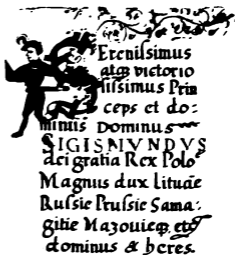 SErenissimus
atqꝫ victorio
sissimus Prin
ceps et do-
minus Dominus
SIGISMVNDVS
dei gratia Rex Polo
Magnus dux Lituãe
Russie Prussie Sama-
gitie Mazouieqꝫ etc
dominus & heres.